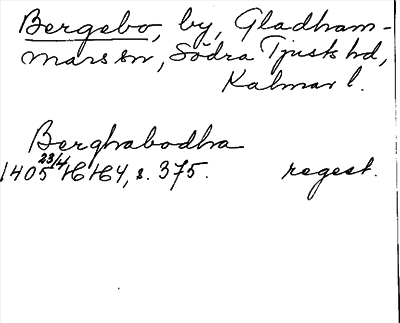 Bergebo, by, Gladham-
mars sn, Södra Tjusts hd,
Kalmar l.
Berghabodha
1405 23/4 HH4, s. 375. regest.